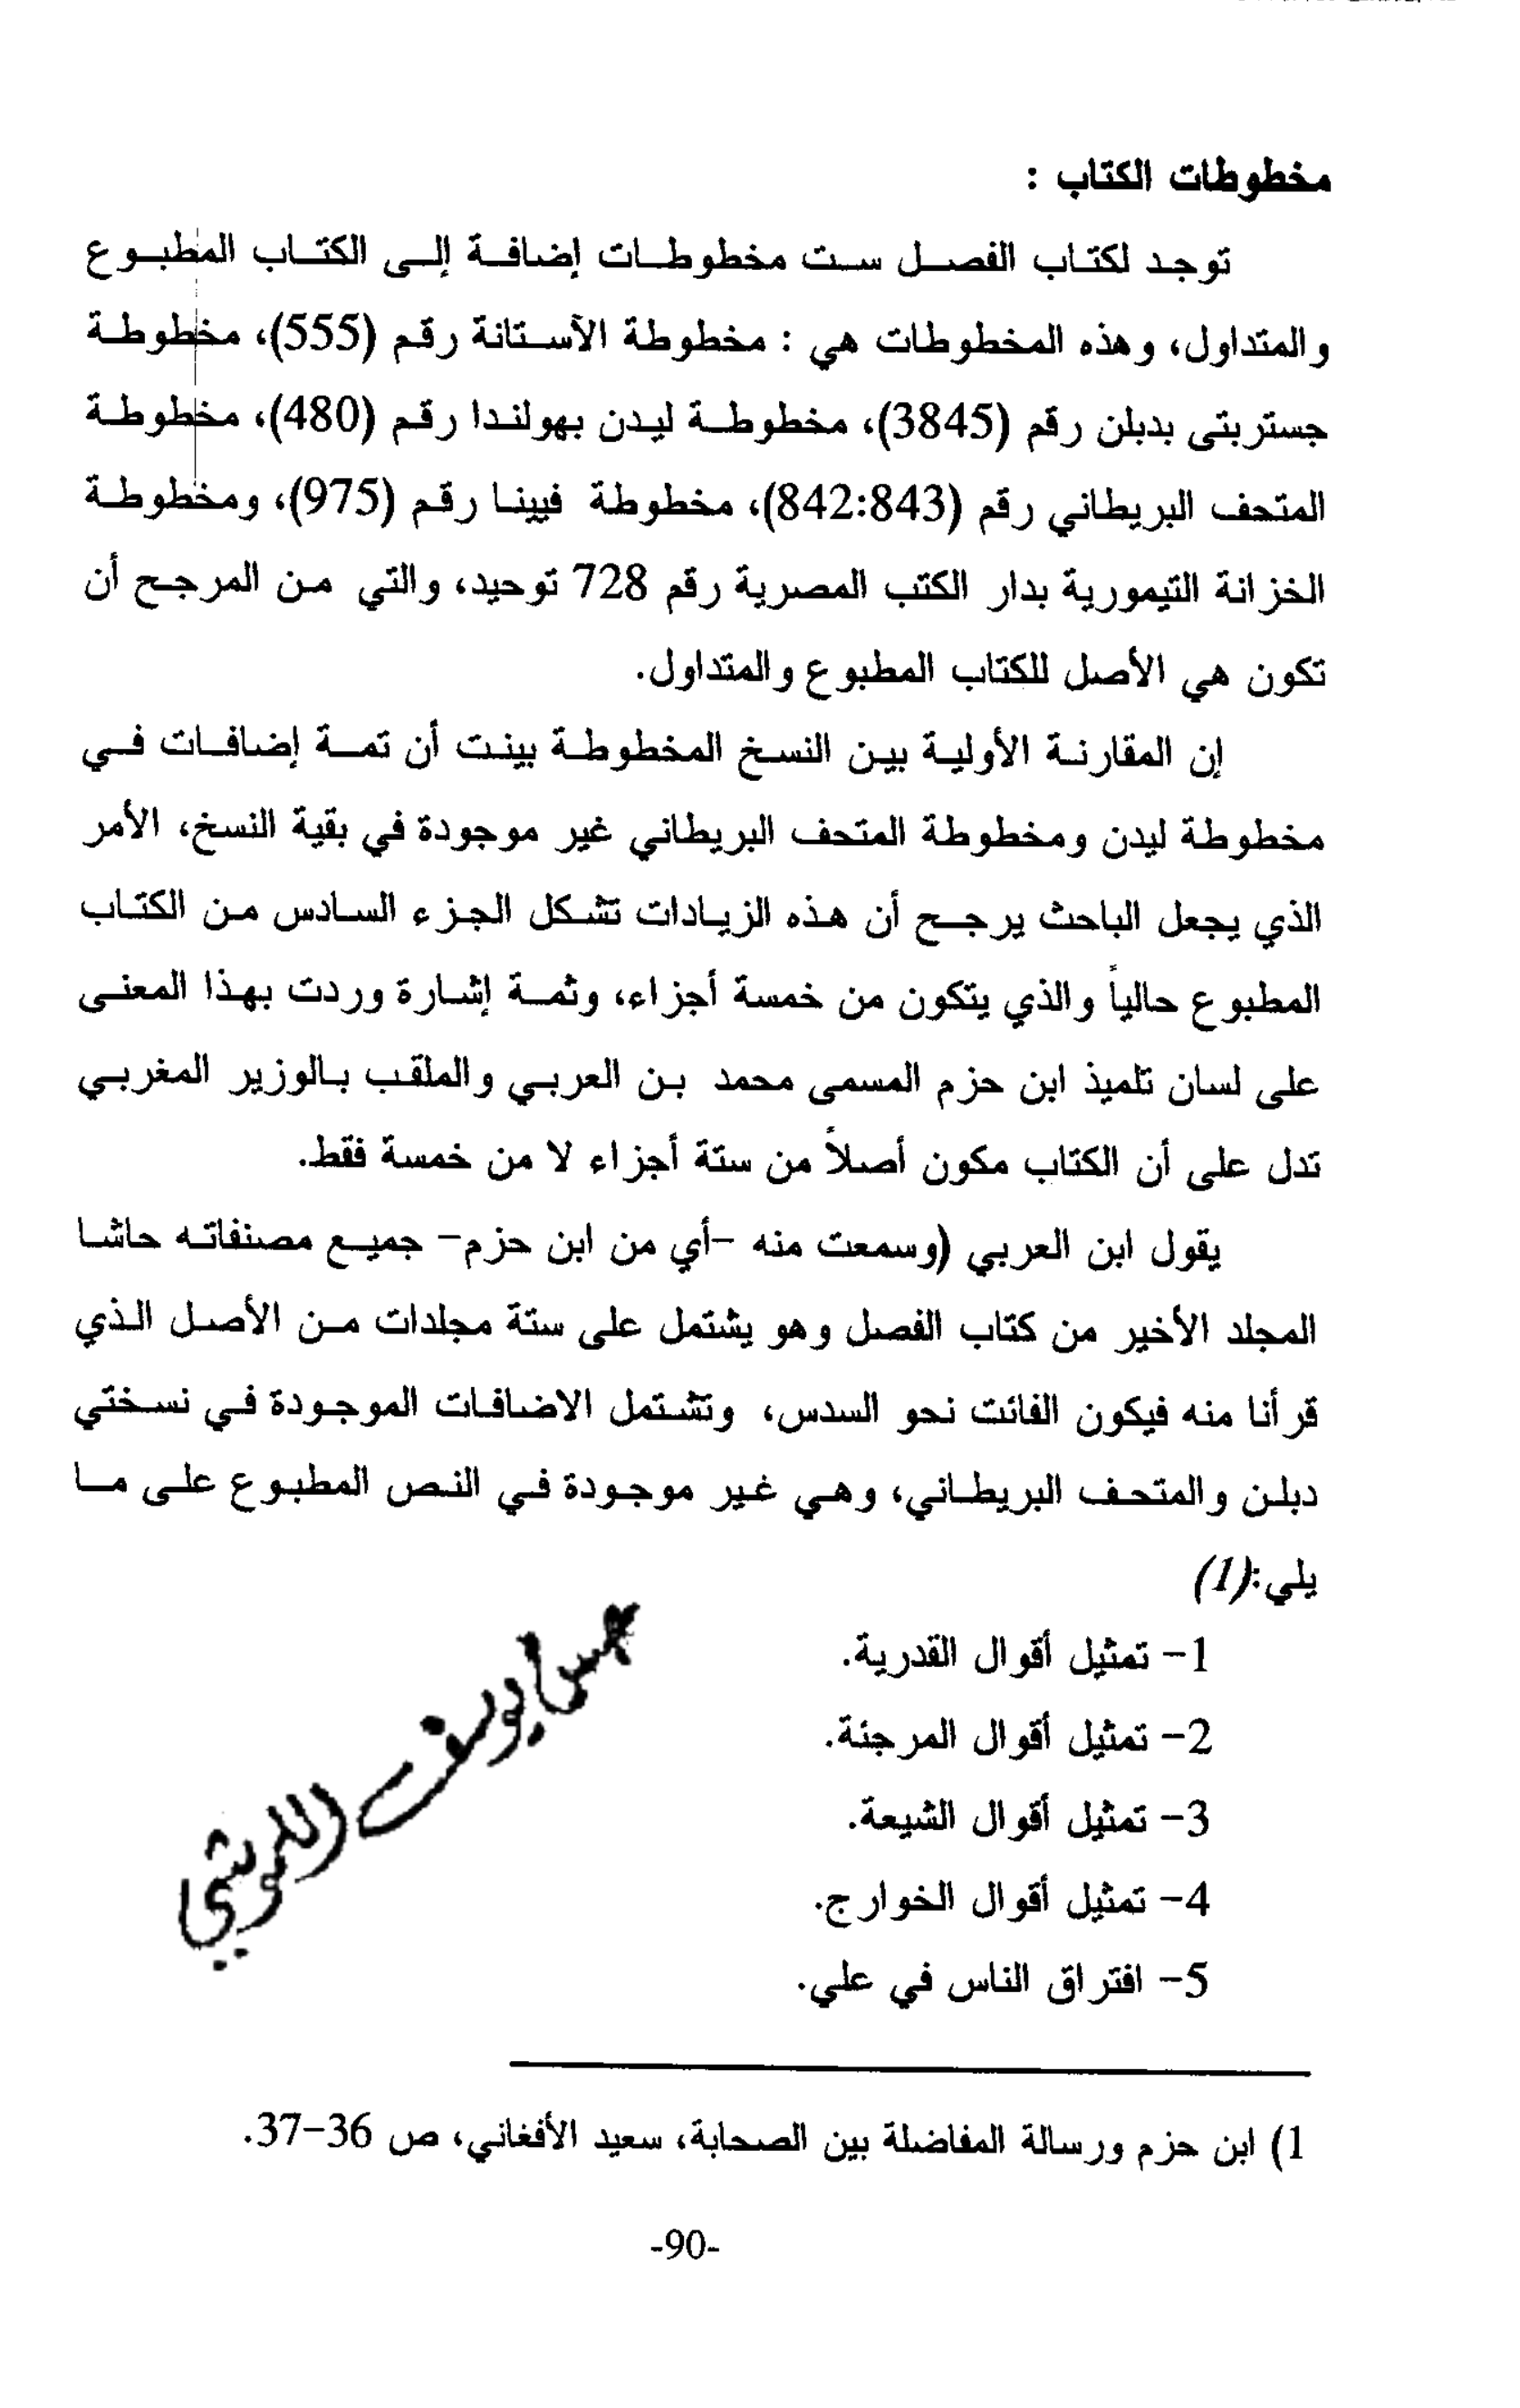 مخطوطات الكتاب :
توجد لكتاب الفصل ست مخطوطات إضافة إلى الكتاب المطبوع
والمتداول، وهذه المخطوطات هي : مخطوطة الآستانة رقم (555)، مخطوطة
جستربتى بدبلن رقم (3845)، مخطوطة ليدن بهولندا رقم (480)، مخطوطة
المتحف البريطاني رقم (842:843)، مخطوطة فيينا رقم (975)، ومخطوطة
الخزانة التيمورية بدار الكتب المصرية رقم 728 توحيد، والتي من المرجح أن
تكون هي الأصل للكتاب المطبوع والمتداول.
إن المقارنة الأولية بين النسخ المخطوطة بينت أن تمة إضافات في
مخطوطة ليدن ومخطوطة المتحف البريطاني غير موجودة في بقية النسخ، الأمر
الذي يجعل الباحث يرجح أن هذه الزيادات تشكل الجزء السادس من الكتاب
المطبوع حالياً والذي يتكون من خمسة أجزاء، وثمة إشارة وردت بهذا المعنى
على لسان تلميذ ابن حزم المسمى محمد بن العربي والملقب بالوزير المغربي
تدل على أن الكتاب مكون أصلاً من ستة أجزاء لا من خمسة فقط.
يقول ابن العربي (وسمعت منه -أي من ابن حزم- جميع مصنفاته حاشا
المجلد الأخير من كتاب الفصل وهو يشتمل على ستة مجلدات من الأصل الذي
قرأنا منه فيكون الفائت نحو السدس، وتشتمل الاضافات الموجودة في نسختي
دبلن والمتحف البريطاني، وهي غير موجودة في النص المطبوع على ما
يلي:(1)
1- تمثيل أقوال القدرية.
2- تمثيل أقوال المرجئة.
3- تمثيل أقوال الشيعة.
4- تمثيل أقوال الخوارج.
5- افتراق الناس في علي.
يوسف
1) ابن حزم ورسالة المفاضلة بين الصحابة، سعيد الأفغاني، ص 36-37.
-90-